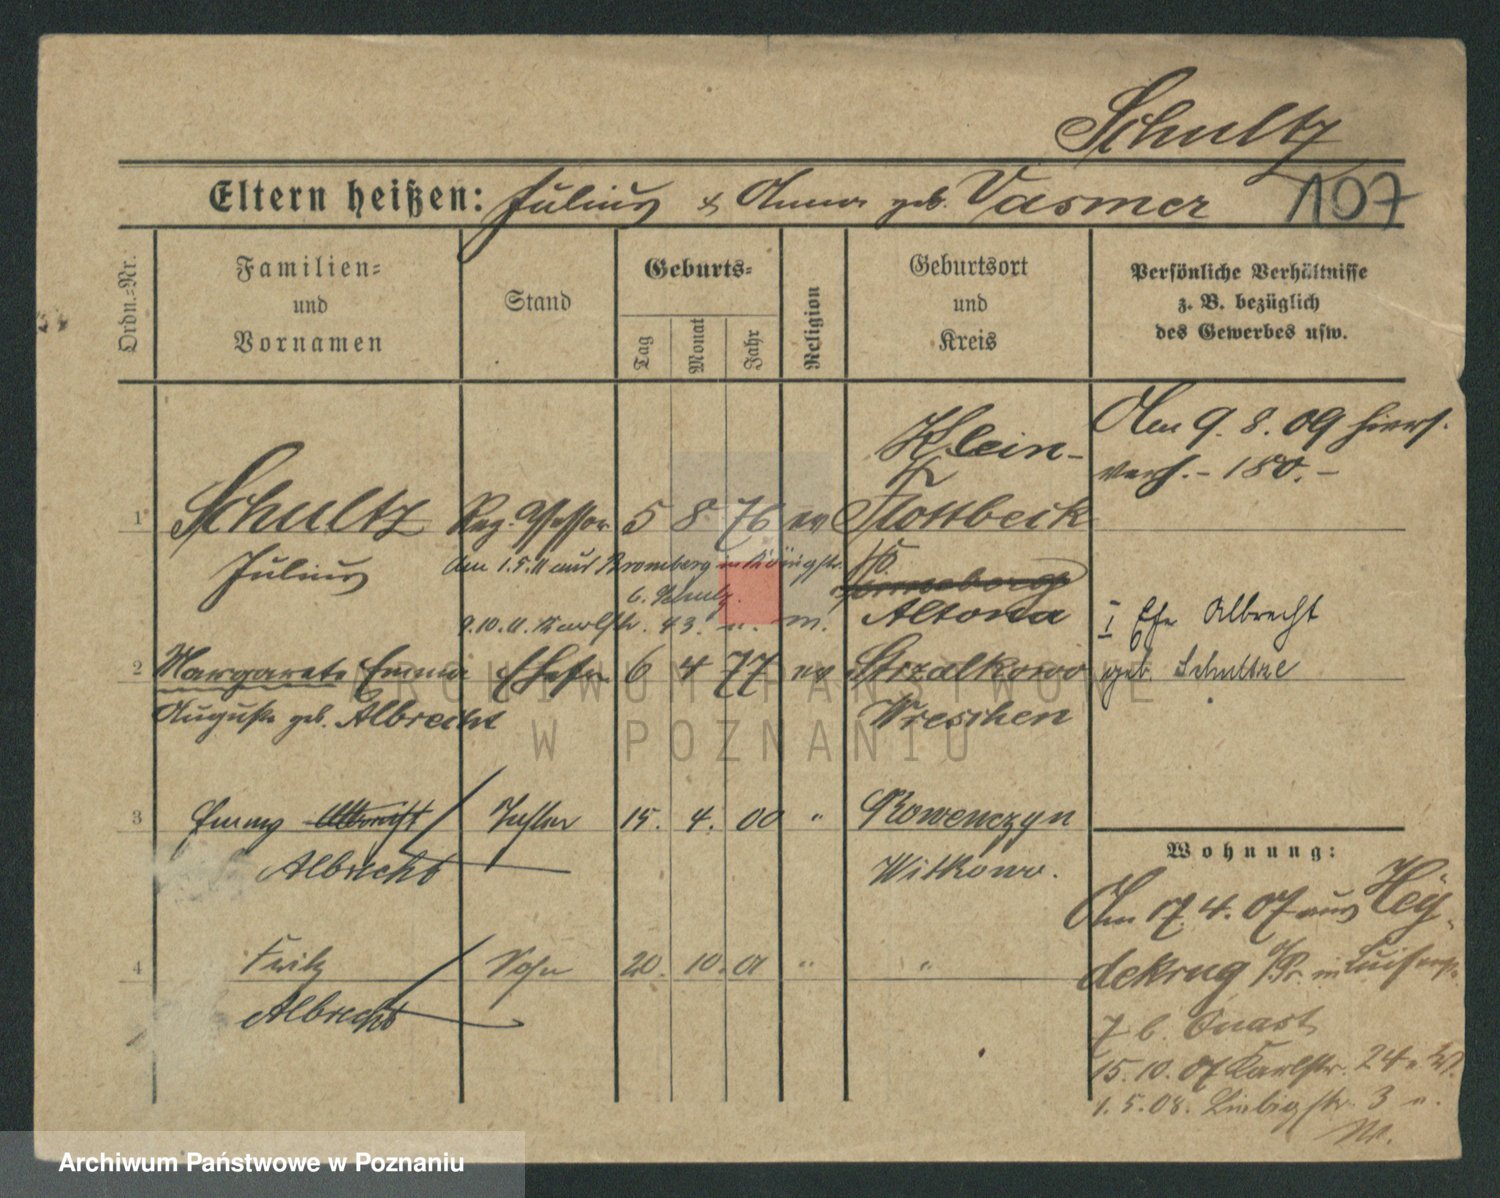 Schultz
Eltern heißen: Julius & Anna geb. Vasmer 107
Ordn.-Nr.
Familien-
und
Vornamen
Stand
Geburts-
Tag
Monat
Jahr
Religion
Geburtsort
und
Kreis
Persönliche Verhältnisse
z. B. bezüglich
des Gewerbes usw.
Am 9. 8. 09 hiers.
vers. - 180. -
1 Schultz Reg. Assessor 5 8. 76 ev Klein-
Flottbeck
Julius
Am 1.5.11 aus Bromberg in Königstr.
6. Schulz.
9.10.11. Karlstr. 43. u. m.
Altona
I Efr Albrecht
geb. Schultze
2 Margarete Emma Ehefr. 6 4 77 ev Strzalkowo
Auguste geb. Albrecht Wreschen
3 Emmy Albrecht Tochter 15. 4. 00 " Rowenczyn
Albrecht Witkowo.
4 Fritz Sohn 20. 10. 01 " "
Albrecht
Wohnung:
Am 17. 4. 07 aus Hey-
dekrug O/Pr. in Luisenstr.
7 b. Quast
15.10.07 Karlstr. 24 u. W.
1. 5. 08. Liebigstr. 3 u.
M.
ARCHIWUM PAŃSTWOWE
W POZNANIU
Archiwum Państwowe w Poznaniu